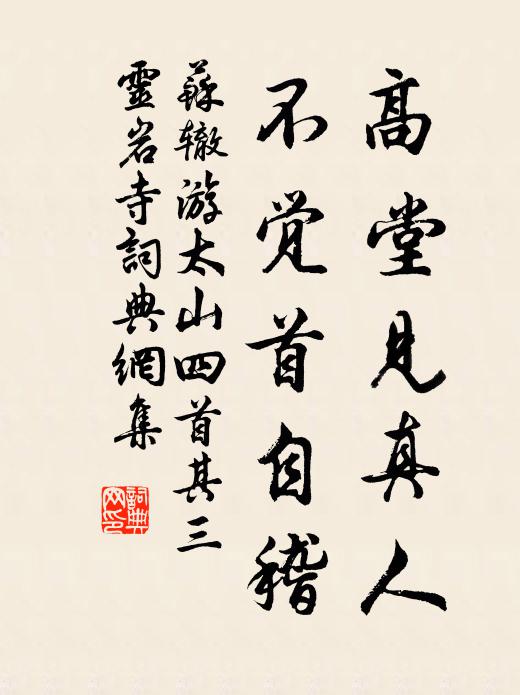 高堂见真人
不觉首自稽
苏辙游太山四首其三
靈岩寺詞典網集
詞典
网印